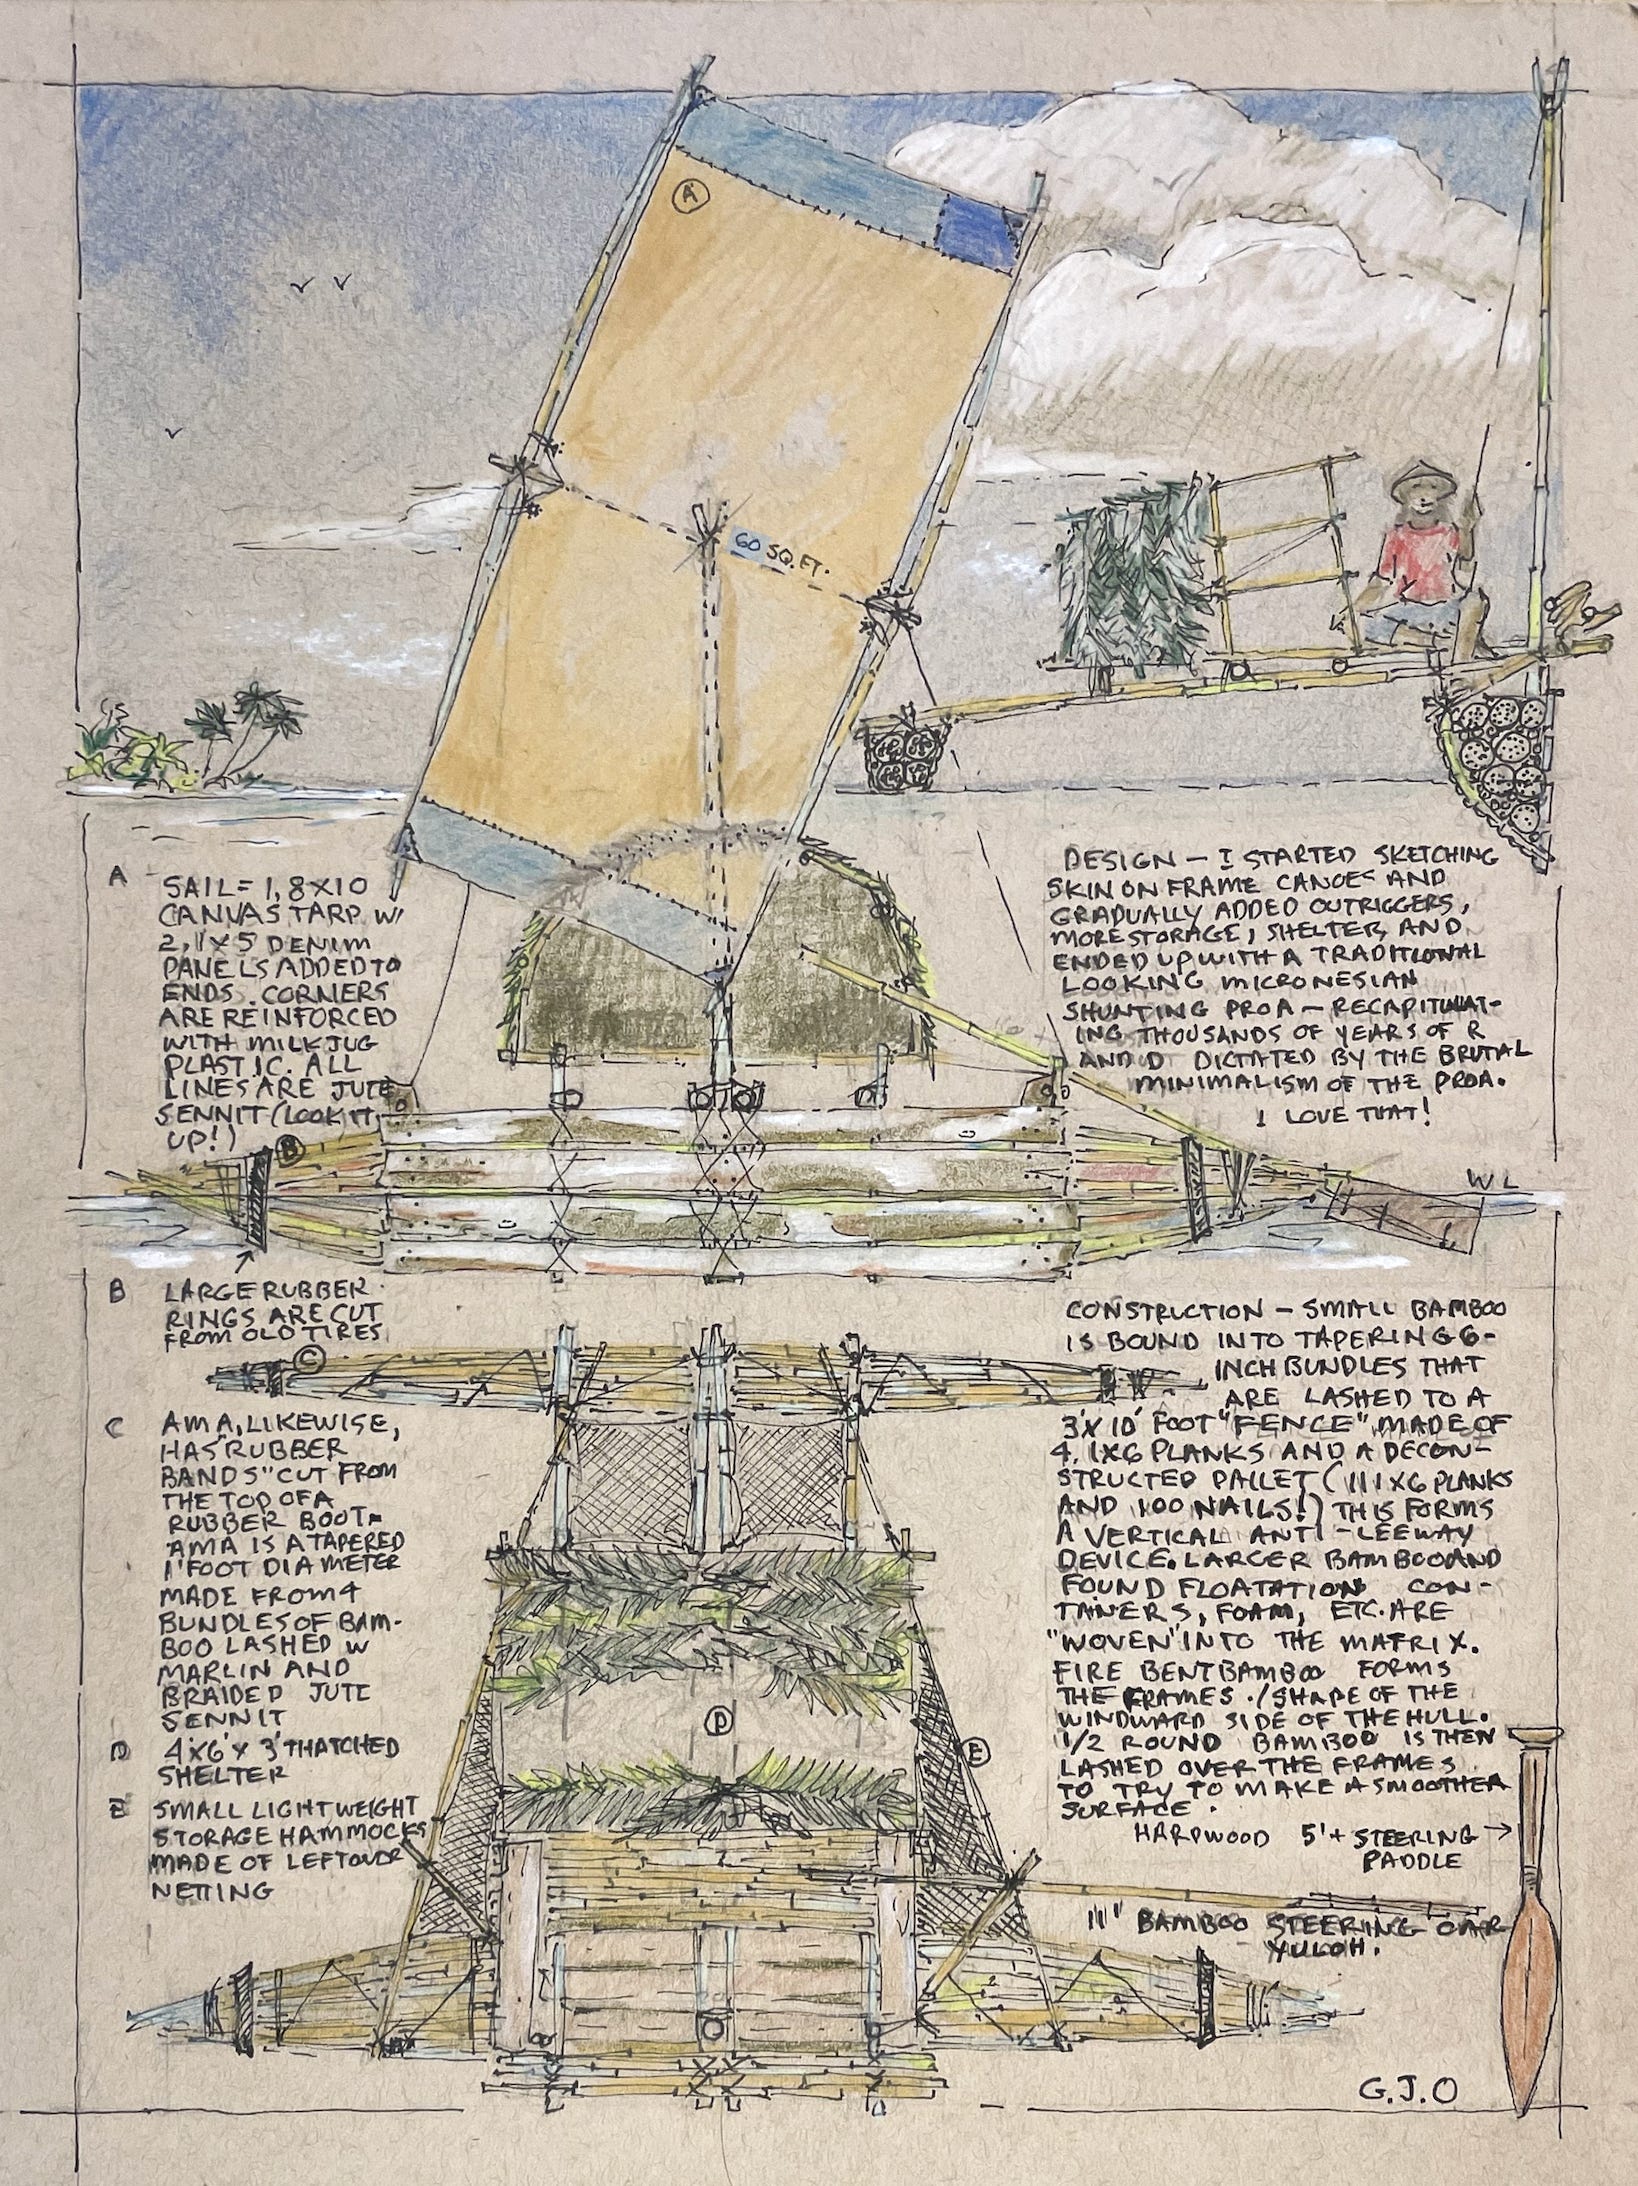 A
60 SQ. FT.
A SAIL = 1, 8X10
CANVAS TARP W/
2, 1'X5 DENIM
PANELS ADDED TO
ENDS. CORNERS
ARE REINFORCED
WITH MILK JUG
PLASTIC. ALL
LINES ARE JUTE
SENNIT (LOOK IT
UP!)
B
DESIGN - I STARTED SKETCHING
SKIN ON FRAME CANOES AND
GRADUALLY ADDED OUTRIGGERS,
MORE STORAGE, SHELTER, AND
ENDED UP WITH A TRADITIONAL
LOOKING MICRONESIAN
SHUNTING PROA - RECAPITULAT-
ING THOUSANDS OF YEARS OF R
AND D DICTATED BY THE BRUTAL
MINIMALISM OF THE PROA.
I LOVE THAT!
WL
B LARGE RUBBER
RINGS ARE CUT
FROM OLD TIRES
C
C AMA, LIKEWISE,
HAS "RUBBER
BANDS" CUT FROM
THE TOP OF A
RUBBER BOOT-
AMA IS A TAPERED
1' FOOT DIAMETER
MADE FROM 4
BUNDLES OF BAM-
BOO LASHED W
MARLIN AND
BRAIDED JUTE
SENNIT
D 4'X6'X 3' THATCHED
SHELTER
E SMALL LIGHTWEIGHT
STORAGE HAMMOCKS
MADE OF LEFTOVER
NETTING
D
E
CONSTRUCTION - SMALL BAMBOO
IS BOUND INTO TAPERING 6-
INCH BUNDLES THAT
ARE LASHED TO A
3'X 10' FOOT "FENCE" MADE OF
4, 1X6 PLANKS AND A DECON-
STRUCTED PALLET (11 1X6 PLANKS
AND 100 NAILS!) THIS FORMS
A VERTICAL ANTI-LEEWAY
DEVICE. LARGER BAMBOO AND
FOUND FLOATATION CON-
TANERS, FOAM, ETC. ARE
"WOVEN" INTO THE MATRIX.
FIRE BENT BAMBOO FORMS
THE FRAMES./SHAPE OF THE
WINDWARD SIDE OF THE HULL.
1/2 ROUND BAMBOO IS THEN
LASHED OVER THE FRAMES
TO TRY TO MAKE A SMOOTHER
SURFACE.
HARDWOOD 5'+ STEERING →
PADDLE
11' BAMBOO STEERING OAR
YULOH.
G.J.O